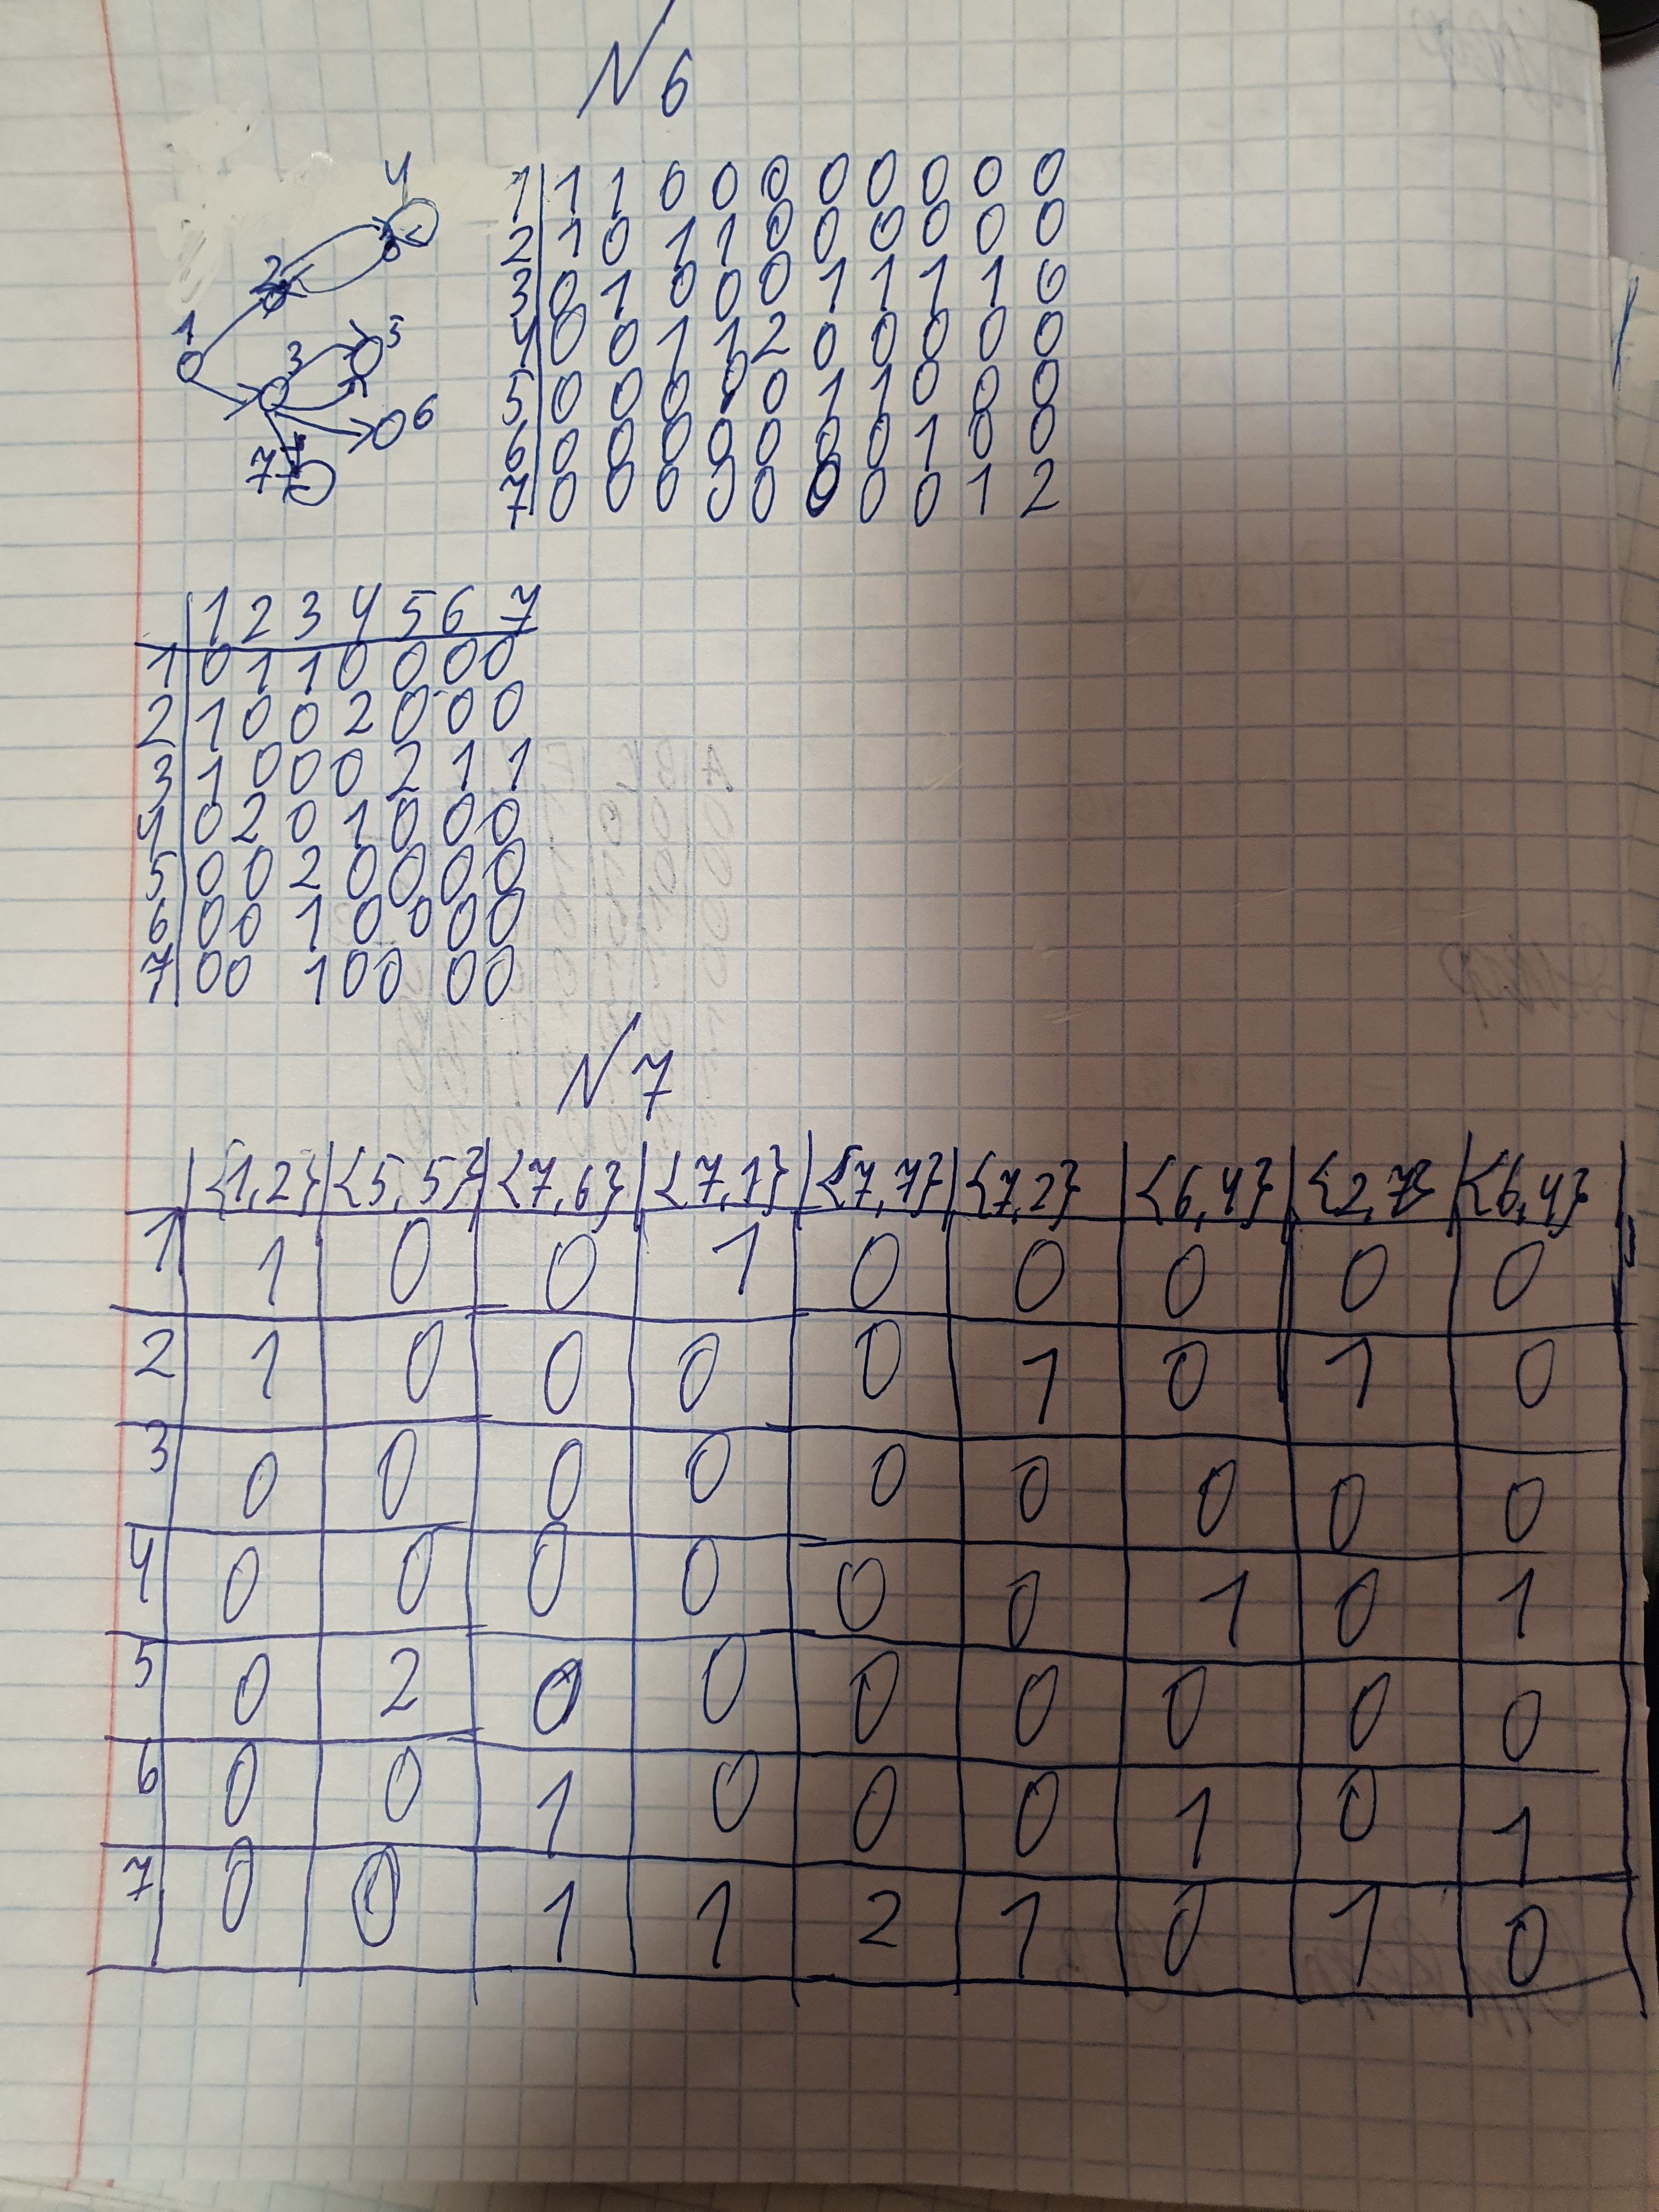 N 6
4
2
1
3
5
6
7
1 1 1 0 0 0 0 0 0 0 0
2 1 0 1 1 0 0 0 0 0 0
3 0 1 0 0 0 1 1 1 1 0
4 0 0 1 1 2 0 0 0 0 0
5 0 0 0 0 0 1 1 0 0 0
6 0 0 0 0 0 0 0 1 0 0
7 0 0 0 0 0 0 0 0 1 2
1 2 3 4 5 6 7
1 0 1 1 0 0 0 0
2 1 0 0 2 0 0 0
3 1 0 0 0 2 1 1
4 0 2 0 1 0 0 0
5 0 0 2 0 0 0 0
6 0 0 1 0 0 0 0
7 0 0 1 0 0 0 0
N 7
{1,2} {5,5} {7,6} {7,1} {7,7} {7,2} {6,4} {2,7} {6,4}
1 1 0 0 1 0 0 0 0 0
2 1 0 0 0 0 1 0 1 0
3 0 0 0 0 0 0 0 0 0
4 0 0 0 0 0 0 1 0 1
5 0 2 0 0 0 0 0 0 0
6 0 0 1 0 0 0 1 0 1
7 0 0 1 1 2 1 0 1 0